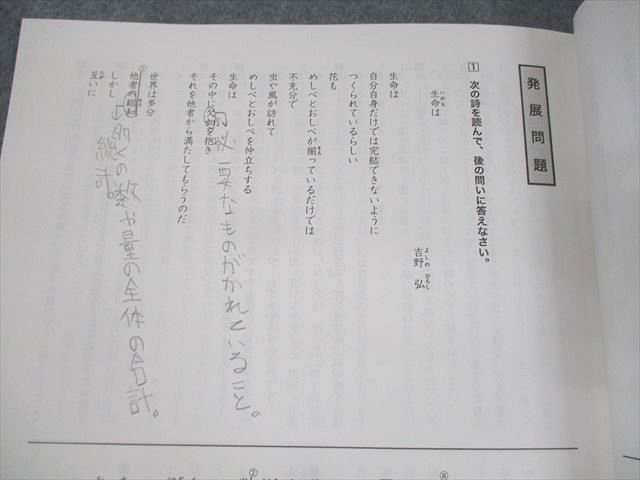 発展問題
1 次の詩を読んで、後の問いに答えなさい。
生命は
吉野 弘
生命は
自分自身だけでは完結できないように
つくられているらしい
花も
めしべとおしべが揃っているだけでは
不充分で
虫や風が訪れて
めしべとおしべを仲立ちする
生命は
その中に欠如を抱き
それを他者から満たしてもらうのだ
世界は多分
他者の総和
しかし
互いに
要なものがかれていること。
の数や量の全体の合計。
総計。
②
ⓐ